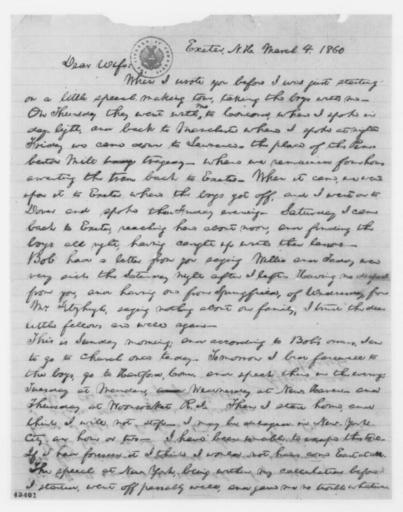 Exeter, N.H. March 4. 1860
Dear Wife:
When I wrote you before I was just starting
on a little speech-making tour, taking the boys with me.
On Thursday they went with me to Concord, where I spoke in
day-light, and back to Manchester where I spoke at night.
Friday we came down to Lawrence the place of the Pem-
berton Mill tragedy where we remained four hours
awaiting the train back to Exeter. When it came, we went
upon it to Exeter where the boys got off, and I went on to
Dover and spoke there Friday evening. Saturday I came
back to Exeter, reaching here about noon, and finding the
boys all right, having caught up with their lessons.
Bob had a letter from you saying Willie and Taddy were
very sick the Saturday night after I left. Having no
from you, and having one from Springfield, of Wednesday, from
Mr. Fitzhugh, saying nothing about our family, I trust the dear
little fellows are well again.
This is Sunday morning; and according to Bob's orders, I am
to go to church once to-day. Tomorrow I bid farewell to
the boys, go to Hartford, Conn. and speak there in the evening;
Tuesday at Meriden, Wednesday at New-Haven and
Thursday at Woonsocket R.I. Then I start home, and
think I will not stop. I may be delayed in New-York
City an hour or two. I have been unable to escape this toil.
If I had foreseen it I think I would not have come East at all.
The speech at New-York, being within my calculation before
I started, went off passably well, and gave me no trouble whatever
43401